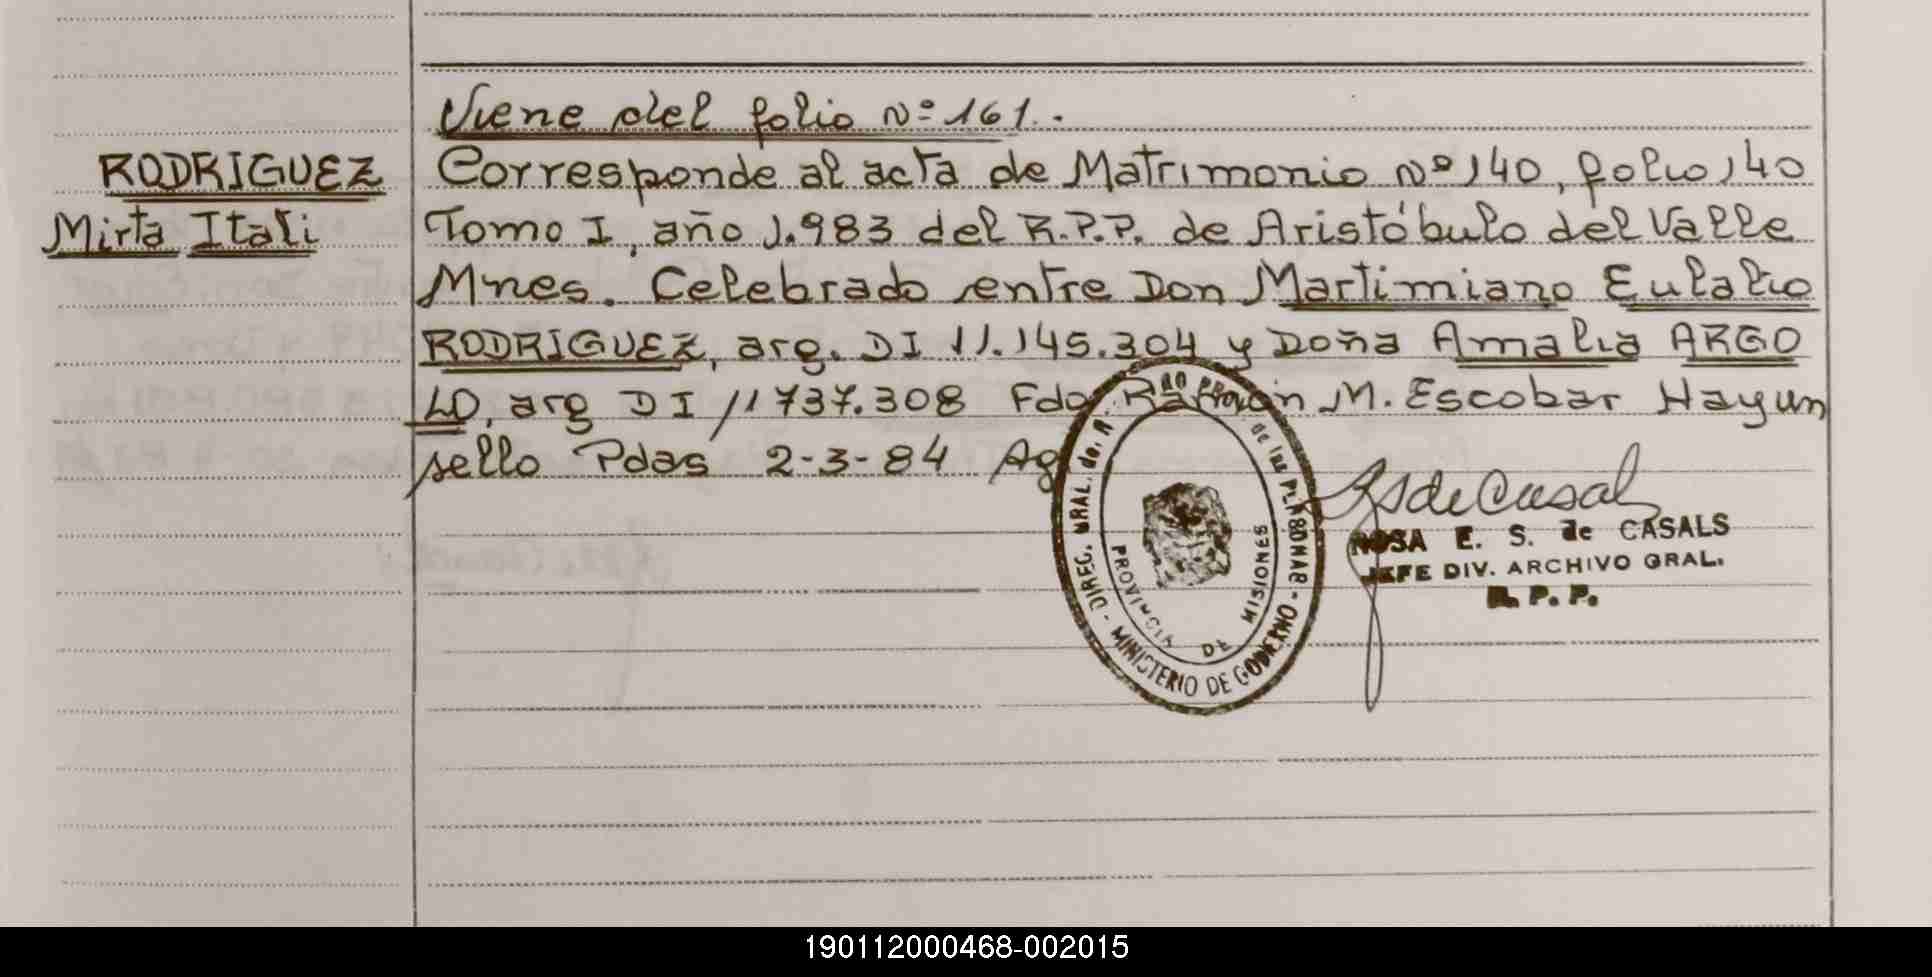 Viene del folio Nº 161..
RODRIGUEZ
Mirta Itati
Corresponde al acta de Matrimonio Nº 140, folio 140
Tomo I, año 1.983 del R.P.P. de Aristóbulo del Valle
Mnes. Celebrado entre Don Martimiano Eulalio
RODRIGUEZ, arg. DI 11.145.304 y Doña Amalia ARGO
LD, arg DI 11737.308 Fdo. Ramón M. Escobar Hay un
sello Pdas 2-3-84 Ag
DIREC. GRAL. de las PERSONAS - MINISTERIO DE GOBIERNO
PROVINCIA DE MISIONES
ROSA E. S. de CASALS
JEFE DIV. ARCHIVO GRAL.
R. P. P.
190112000468-002015